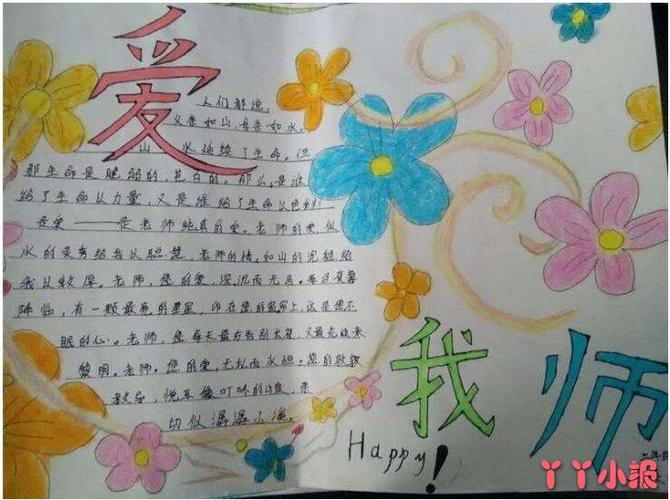 爱
人们都说。
父爱如山，母爱如水，
山 水延续了生命。但
那生命是脆弱的，苍白的。那么，是谁
给了生命以力量，又是谁给了生命以色彩
是爱——是老师纯真的爱。老师的爱，似
水的灵秀给我以聪慧，老师的情，如山的沉稳给
我以敦厚。老师，您的爱，深沉而无言。每当夜幕
降临，有一颗最亮的星星，印在您的窗帘上，这是您不
眠的心。老师，您每天最后告别太阳，又最先迎来
黎明。老师。您的爱，无私而永恒。您的
教导，悦耳 叮咚的 ，亲
切似潺潺小溪。
我
师
Happy!
二年
丫丫小报